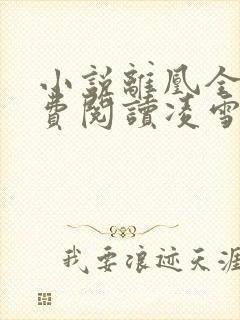 小説離凰全
費閱讀凌雪
我要浪迹天涯